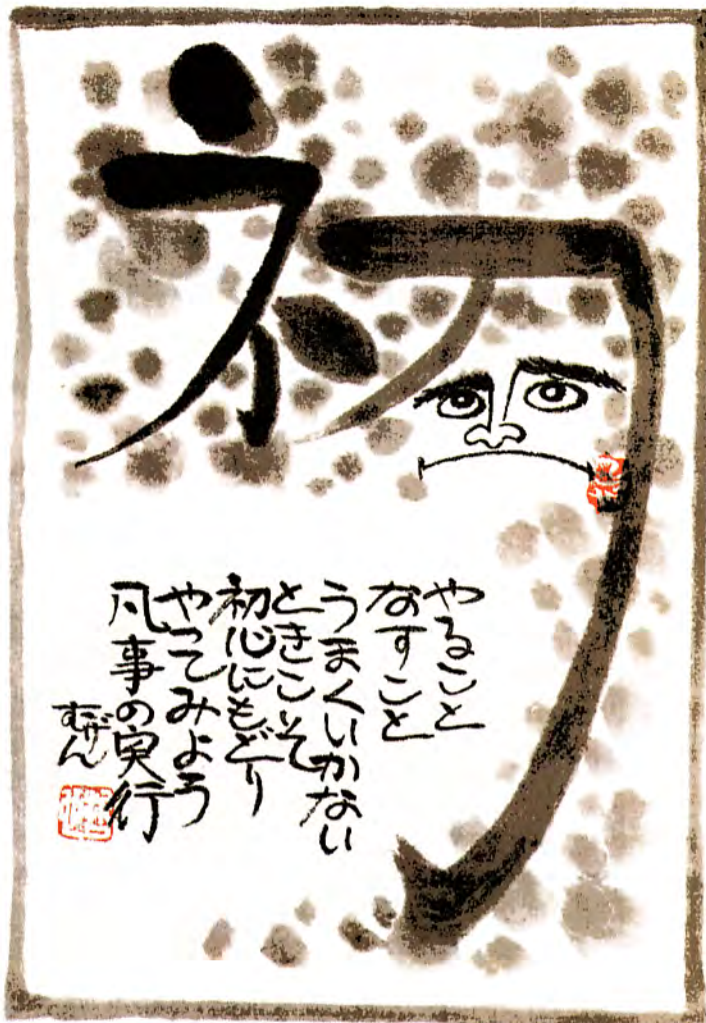 初
やること
なすこと
うまくいかない
ときこそ
初心にもどり
やってみよう
凡事の実行
むげん